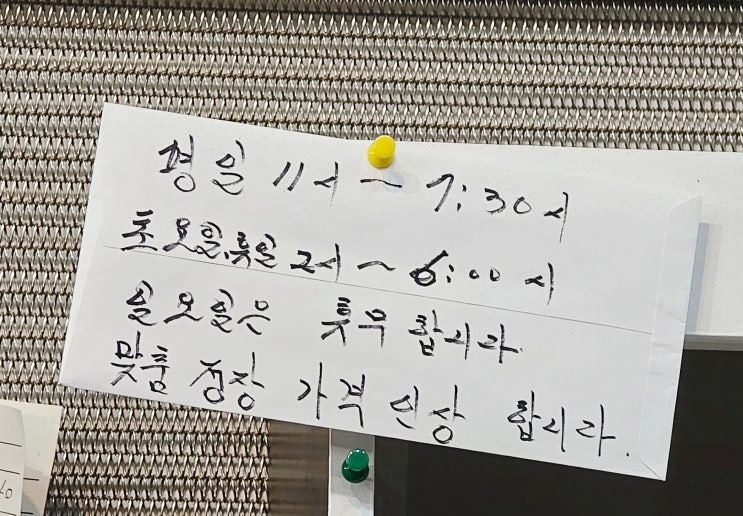 평일 11시 ~ 7:30시
토요일, 휴일 2시 ~ 6:00시
일요일은 휴무 합니다.
맞춤 정장 가격 인상 합니다.